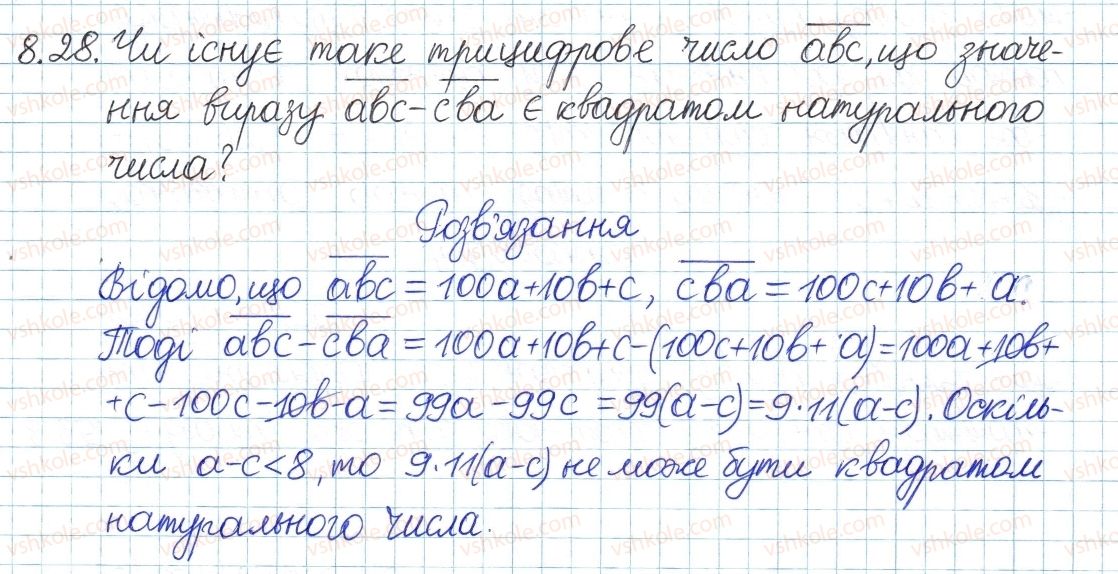 8.28. Чи існує таке трицифрове число a̅b̅c̅, що значе-
ння виразу a̅b̅c̅ - c̅b̅a̅ є квадратом натурального
числа?
Розв'язання
Відомо, що a̅b̅c̅ = 100a+10b+c, c̅b̅a̅ = 100c+10b+a.
Тоді a̅b̅c̅ - c̅b̅a̅ = 100a+10b+c-(100c+10b+a)=100a+10b+
+c-100c-10b-a=99a-99c=99(a-c)=9·11(a-c). Оскіль-
ки a-c<8, то 9·11(a-c) не може бути квадратом
натурального числа.